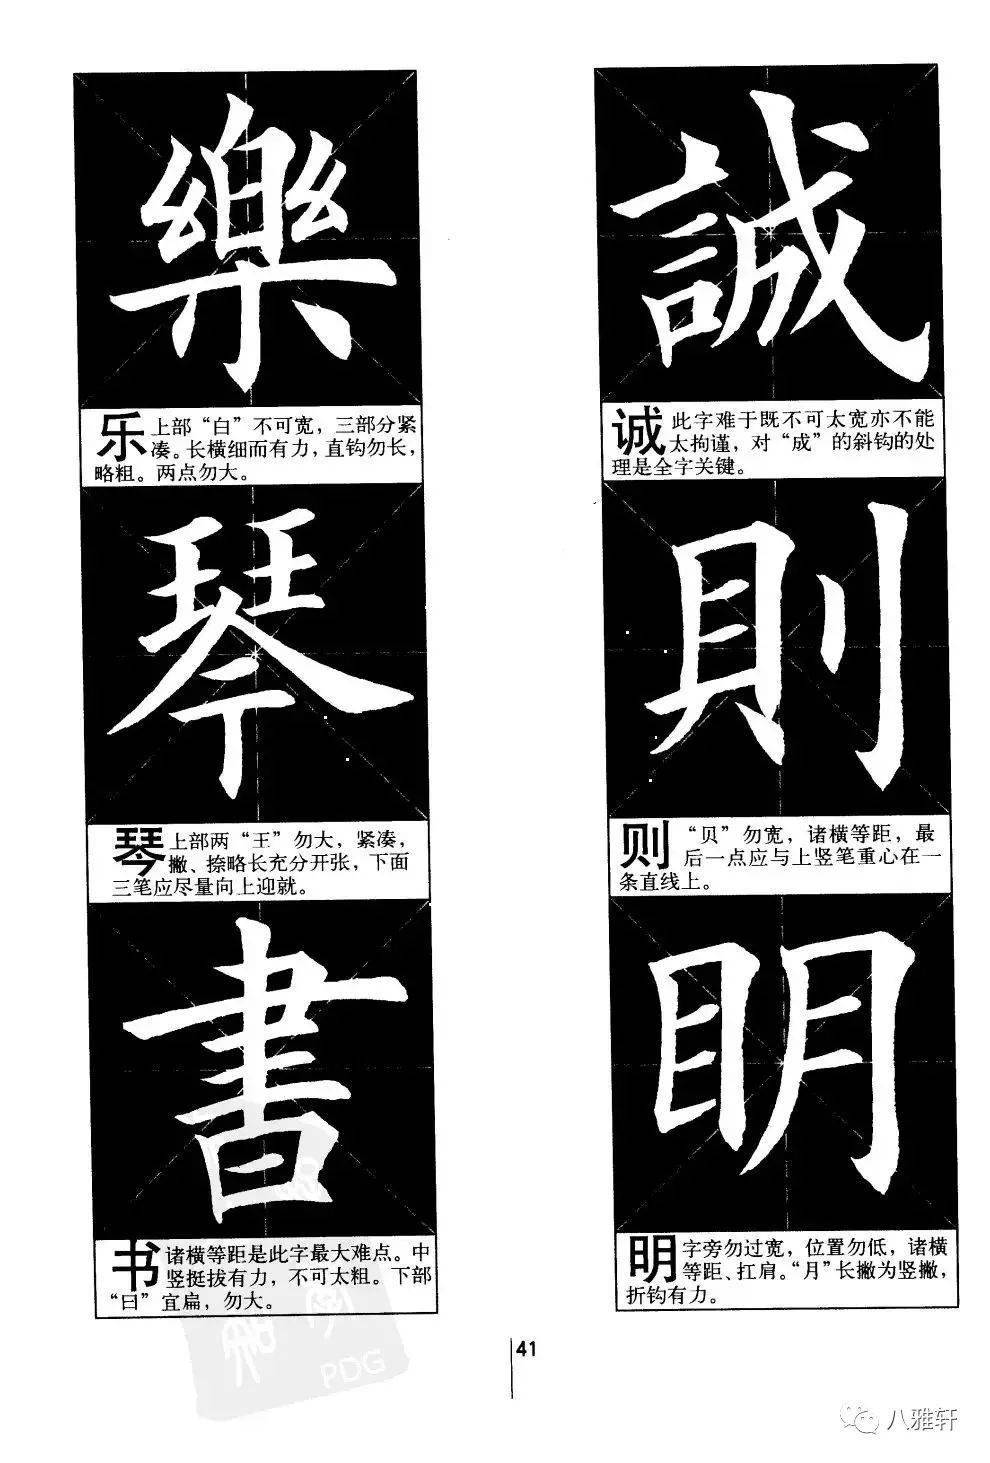 誠
诚 此字难于既不可太宽亦不能
太拘谨，对“成”的斜钩的处
理是全字关键。
則
则 “贝”勿宽，诸横等距，最
后一点应与上竖笔重心在一
条直线上。
明
明 字旁勿过宽，位置勿低，诸横
等距、扛肩。“月”长撇为竖撇，
折钩有力。
樂
乐 上部“白”不可宽，三部分紧
凑。长横细而有力，直钩勿长，
略粗。两点勿大。
琴
琴 上部两“王”勿大，紧凑，
撇、捺略长充分开张，下面
三笔应尽量向上迎就。
書
书 诸横等距是此字最大难点。中
竖挺拔有力，不可太粗。下部
“曰”宜扁，勿大。
41
PDG
八雅轩